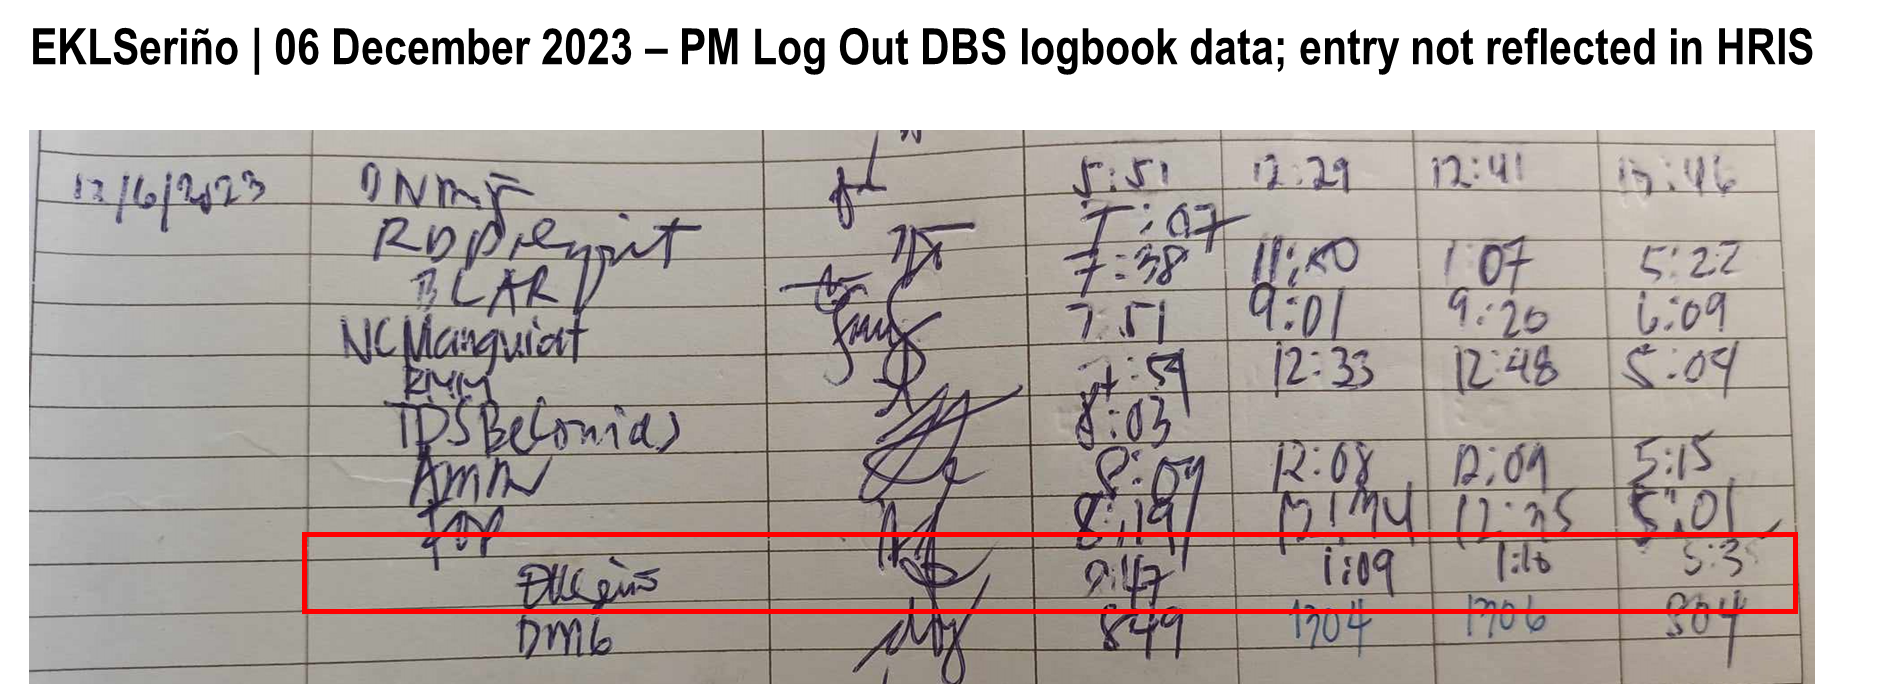 EKLSeriño | 06 December 2023 – PM Log Out DBS logbook data; entry not reflected in HRIS
12/6/2023 5:51 12:29 12:41
7:07
BLAR 7:38 11:50 1:07 5:22
NCManguiat 7:51 9:01 9:20 6:09
RMM 7:59 12:33 12:48 5:09
TDSBelonias 8:03
AMM 8:09 12:08 12:09 5:15
8:19 5:01
1:09 1:10
DMG 849 1204 1206 504